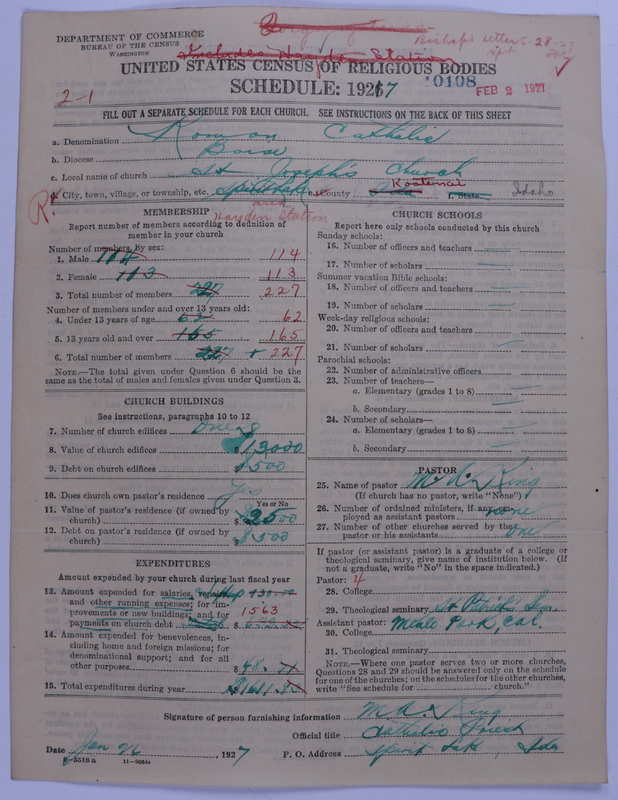 DEPARTMENT OF COMMERCE
BUREAU OF THE CENSUS
WASHINGTON
Includes Hayden Station
Bishop's letter 5-28-27
UNITED STATES CENSUS OF RELIGIOUS BODIES
SCHEDULE: 1927
10108
FEB 2 1927
2-1
FILL OUT A SEPARATE SCHEDULE FOR EACH CHURCH. SEE INSTRUCTIONS ON THE BACK OF THIS SHEET
a. Denomination Roman Catholic
b. Diocese Boise
c. Local name of church St Joseph's Church
d. City, town, village, or township, etc. Spirit Lake e. County Kootenai f. State Idaho
and
Hayden Station
MEMBERSHIP
Report number of members according to definition of
member in your church
Number of members, by sex:
1. Male 114 114
2. Female 113 113
3. Total number of members 227 227
Number of members under and over 13 years old:
4. Under 13 years of age 62 62
5. 13 years old and over 165 165
6. Total number of members 227 + 227
NOTE.—The total given under Question 6 should be
same as the total of males and females given under Question 3.
CHURCH BUILDINGS
See instructions, paragraphs 10 to 12
7. Number of church edifices One
8. Value of church edifices $13000
9. Debt on church edifices $500
10. Does church own pastor's residence Yes
Yes or No
11. Value of pastor's residence (if owned by
church) $2500
12. Debt on pastor's residence (if owned by
church) $500
EXPENDITURES
Amount expended by your church during last fiscal year
13. Amount expended for salaries, repairs
and other running expenses; for im-
provements or new buildings; and for
payments on church debt 1563
14. Amount expended for benevolences, in-
cluding home and foreign missions; for
denominational support; and for all
other purposes $48.
15. Total expenditures during year $1611
CHURCH SCHOOLS
Report here only schools conducted by this church
Sunday schools:
16. Number of officers and teachers
17. Number of scholars
Summer vacation Bible schools:
18. Number of officers and teachers
19. Number of scholars
Week-day religious schools:
20. Number of officers and teachers
21. Number of scholars
Parochial schools:
22. Number of administrative officers
23. Number of teachers—
a. Elementary (grades 1 to 8)
b. Secondary
24. Number of scholars—
a. Elementary (grades 1 to 8)
b. Secondary
PASTOR
25. Name of pastor M. A. King
(If church has no pastor, write "None")
26. Number of ordained ministers, if any, em-
ployed as assistant pastors none
27. Number of other churches served by the
pastor or his assistants one
If pastor (or assistant pastor) is a graduate of a college or
theological seminary, give name of institution below. (If
not a graduate, write "No" in the space indicated.)
Pastor: 4
28. College
29. Theological seminary St Patrick's Sem.
Assistant pastor: Menlo Park, Cal.
30. College
31. Theological seminary
NOTE.—Where one pastor serves two or more churches,
Questions 28 and 29 should be answered only on the schedule
for one of the churches; on the schedules for the other churches,
write "See schedule for church."
Signature of person furnishing information M. A. King
Official title Catholic Priest
Date Jan 26, 1927 P. O. Address Spirit Lake, Ida